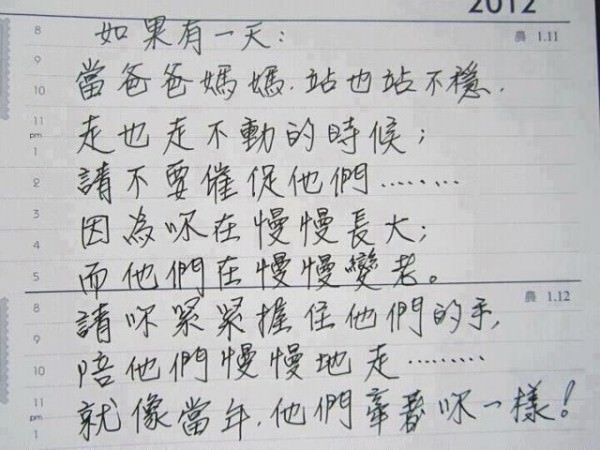 2012
如果有一天：
農 1.11
當爸爸媽媽．站也站不穩．
走也走不動的時候；
請不要催促他們………
因為你在慢慢長大；
而他們在慢慢變老。
農 1.12
請你緊緊握住他們的手，
陪他們慢慢地走………
就像當年．他們牽著你一樣！
8
9
10
11
pm
1
2
3
4
5
8
9
10
11
pm
1